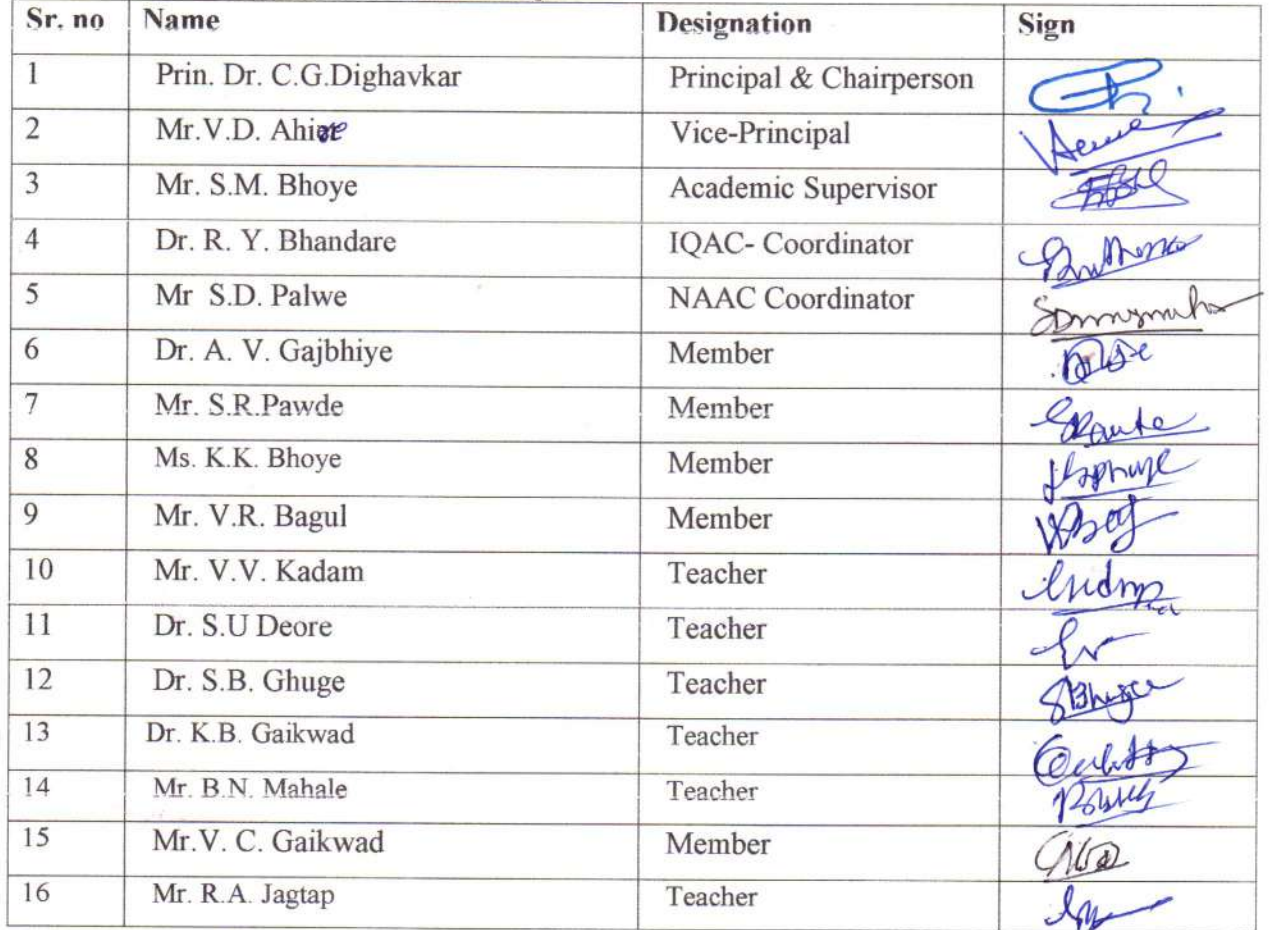 Sr. no Name Designation Sign
1 Prin. Dr. C.G.Dighavkar Principal & Chairperson
2 Mr.V.D. Ahire Vice-Principal
3 Mr. S.M. Bhoye Academic Supervisor
4 Dr. R. Y. Bhandare IQAC- Coordinator
5 Mr S.D. Palwe NAAC Coordinator
6 Dr. A. V. Gajbhiye Member
7 Mr. S.R.Pawde Member
8 Ms. K.K. Bhoye Member
9 Mr. V.R. Bagul Member
10 Mr. V.V. Kadam Teacher
11 Dr. S.U Deore Teacher
12 Dr. S.B. Ghuge Teacher
13 Dr. K.B. Gaikwad Teacher
14 Mr. B.N. Mahale Teacher
15 Mr.V. C. Gaikwad Member
16 Mr. R.A. Jagtap Teacher